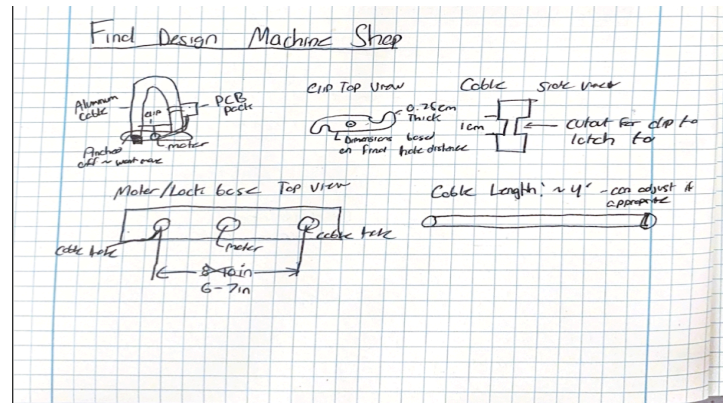 Final Design Machine Shop
Aluminum cable
CLIP
PCB pack
Anchor off ~ want more
motor
Clip Top View
0.75cm Thick
Dimensions based on final hole distance
Cable Side View
1cm
cutout for clip to latch to
Motor/Lock base Top View
cable hole
motor
cable hole
6-7in
Cable Length: ~4' - can adjust if appropriate